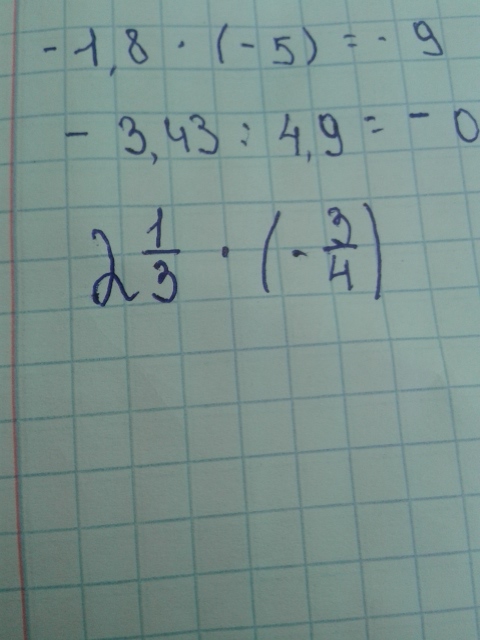 -1,8 · (-5) = - 9
- 3,43 : 4,9 = - 0
2 1/3 · (- 3/4)